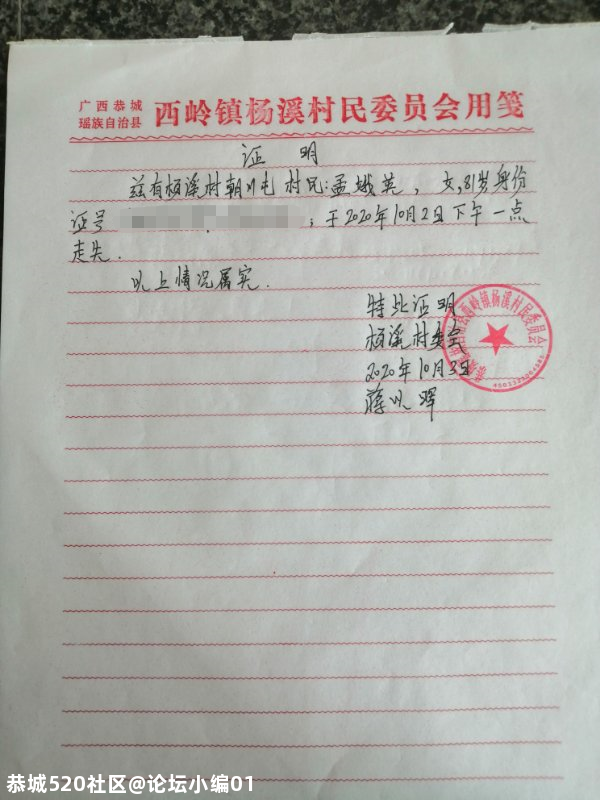 广西恭城
瑶族自治县
西岭镇杨溪村民委员会用笺
证 明
兹有杨溪村朝川屯村民:孟娥英,女,81岁身份
证号 ,于2020年10月2日下午一点
走失.
以上情况属实.
特此证明
杨溪村委会
2020年10月3日
蒋 晖
西岭镇杨溪村民委员会
恭城520社区@论坛小编01